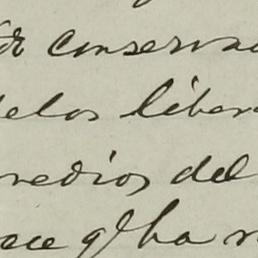 de conserva
delos libera
redios del
ace qe ha